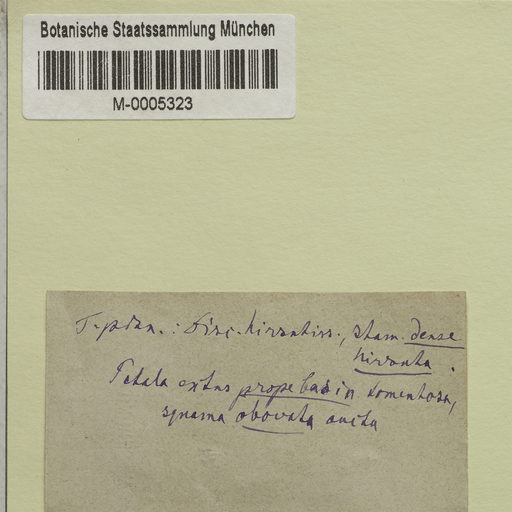 Botanische Staatssammlung München
M-0005323
disc. hirsutiss., stam. dense
hirsuta.
Petala extus prope basin tomentosa,
squama obovata aucta